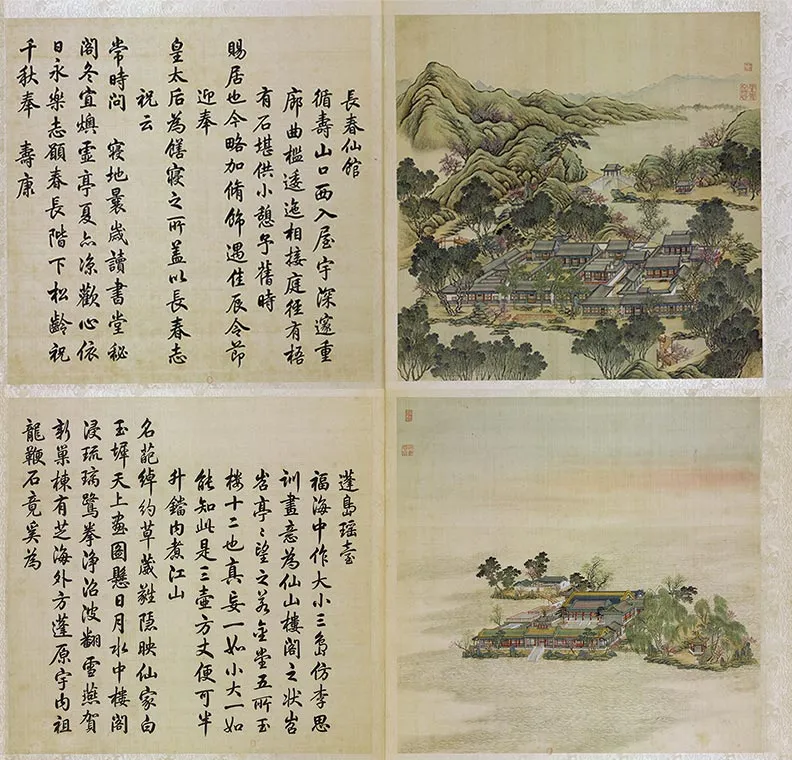 長春仙館
循壽山口西入屋宇深邃重
廊曲檻逶迤相接庭徑有梧
有石堪供小憩予舊時
賜居也今略加脩飾遇佳辰令節
迎奉
皇太后為膳寢之所蓋以長春志
祝云
常時問寢地曩歲讀書堂秘
閣冬宜燠虛亭夏亦涼歡心依
日永樂志願春長階下松齡祝
千秋奉壽康
蓬島瑤臺
福海中作大小三島仿李思
訓畫意為仙山樓閣之狀岧
岧亭亭望之若金堂五所玉
樓十二也真妄一如小大一如
能知此是三壺方丈便可半
升鐺內煮江山
名葩綽約草葳蕤隱映仙家白
玉墀天上畫圖懸日月水中樓閣
浸琉璃鷺拳淨沼波翻雪燕賀
新巢棟有芝海外方蓬原宇內祖
龍鞭石竟奚為